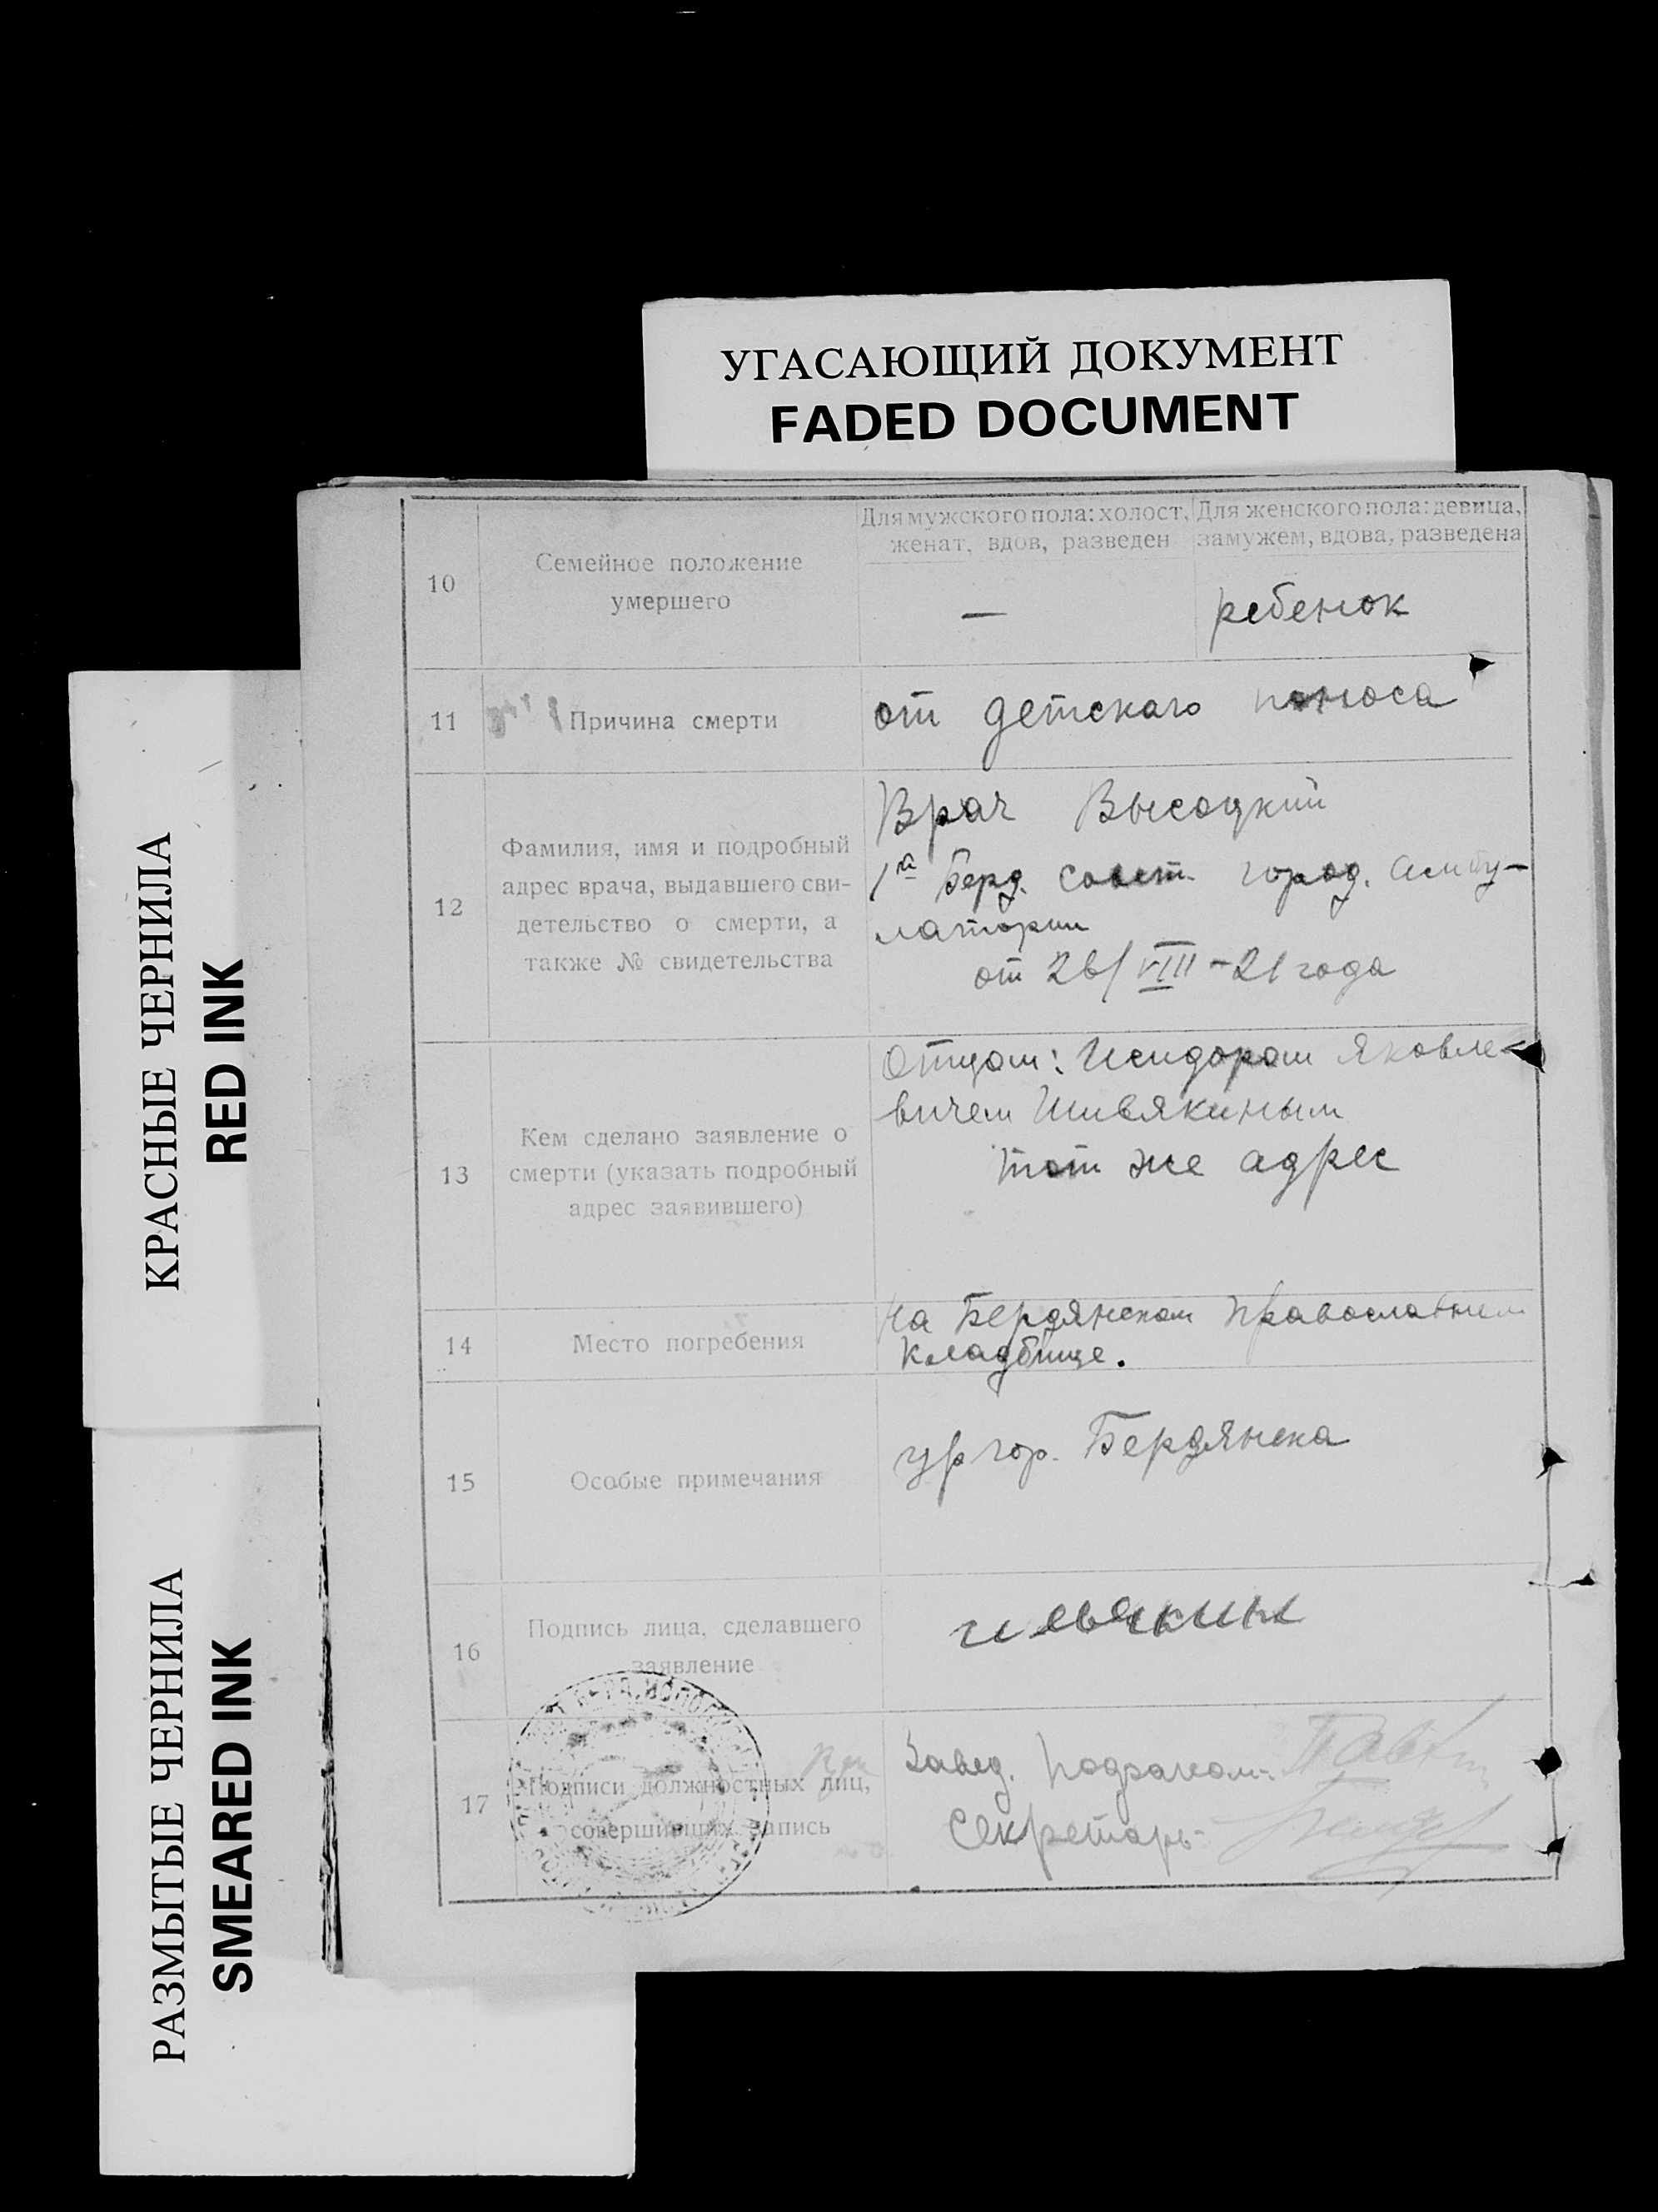 УГАСАЮЩИЙ ДОКУМЕНТ
FADED DOCUMENT
КРАСНЫЕ ЧЕРНИЛА
RED INK
РАЗМЫТЫЕ ЧЕРНИЛА
SMEARED INK
10
Семейное положение
умершего
Для мужского пола: холост,
женат, вдов, разведен
—
Для женского пола: девица,
замужем, вдова, разведена
ребенок
11
Причина смерти
от детскаго поноса
12
Фамилия, имя и подробный
адрес врача, выдавшего сви-
детельство о смерти, а
также № свидетельства
Врач Высоцкий
1й Берд. Совет. город. амбу-
латории
от 26/VIII-21 года
13
Кем сделано заявление о
смерти (указать подробный
адрес заявившего)
Отцом: Исидором Яковле-
вичем Шивякиным
тот же адрес
14
Место погребения
на Бердянском православном
кладбище.
15
Особые примечания
ур гор. Бердянска
16
Подпись лица, сделавшего
заявление
17
Подписи должностных лиц,
совершивших запись
Завед. подзагсом
Секретарь